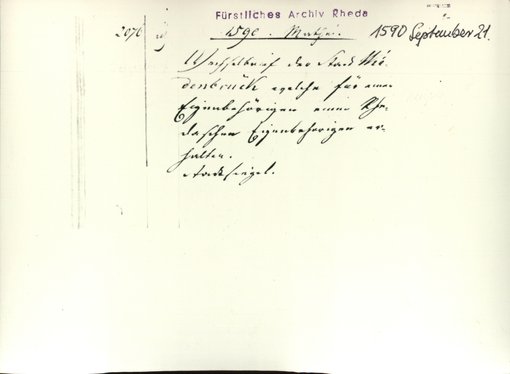 Fürstliches Archiv Rheda
2076
1590. Mathei.
1590 September 21.
Wechselbrief der Stadt Wie-
denbrück welche für einen
Eigenbehörigen einen Rhe-
daschen Eigenbehörigen er-
halten.
Stadtsiegel.